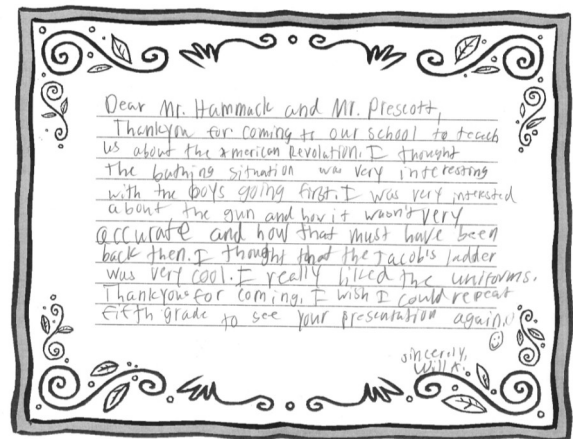 Dear Mr. Hammack and Mr. Prescott,
Thankyou for coming to our school to teach
us about the American Revolution. I thought
the bathing situation was very interesting
with the boys going first. I was very intersted
about the gun and how it wasn't very
accurate and how that must have been
back then. I thought that the Jacob's ladder
was very cool. I really liked the uniforms.
Thankyou for coming. I wish I could repeat
fifth grade to see your presentation again.
sincerily,
Will A.